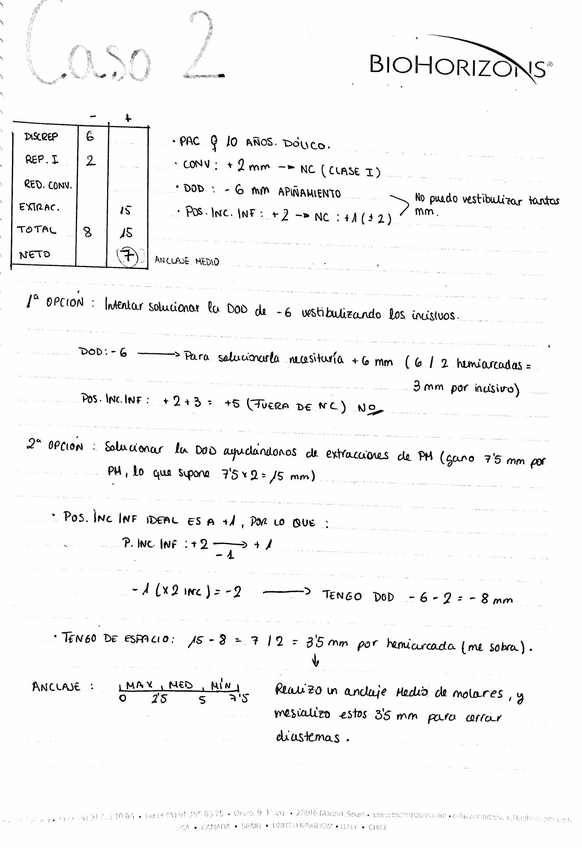 Caso 2
BIOHORIZONS®
- +
DISCREP 6
REP. I 2
RED. CONV.
EXTRAC. 15
TOTAL 8 15
NETO 7
ANCLAJE MEDIO
· PAC ♀ 10 AÑOS. DÓLICO.
· CONV: +2 mm → NC (CLASE I)
· DOD: -6 mm APIÑAMIENTO
· POS. INC. INF: +2 → NC: +1 (±2)
No puedo vestibulizar tantos
mm.
1ª OPCIÓN: Intentar solucionar la DOD de -6 vestibulizando los incisivos.
DOD: -6 → Para solucionarla necesitaría +6 mm (6 / 2 hemiarcadas =
3 mm por incisivo)
POS. INC. INF: +2 +3 = +5 (FUERA DE NC) NO
2ª OPCIÓN: Solucionar la DOD ayudándonos de extracciones de PM (gano 7'5 mm por
PM, lo que supone 7'5 x 2 = 15 mm)
· POS. INC INF IDEAL ES A +1, POR LO QUE:
P. INC INF: +2 → +1
-1
-1 (x2 INC) = -2 → TENGO DOD -6 -2 = -8 mm
· TENGO DE ESPACIO: 15 - 8 = 7 / 2 = 3'5 mm por hemiarcada (me sobra).
↓
ANCLAJE: MAX, MED, MÍN
0 2'5 5 7'5
Realizo un anclaje Medio de molares, y
mesializo estos 3'5 mm para cerrar
diastemas.
28016 Madrid, Spain •
USA • CANADA • SPAIN • UNITED KINGDOM • ITALY • CHILE